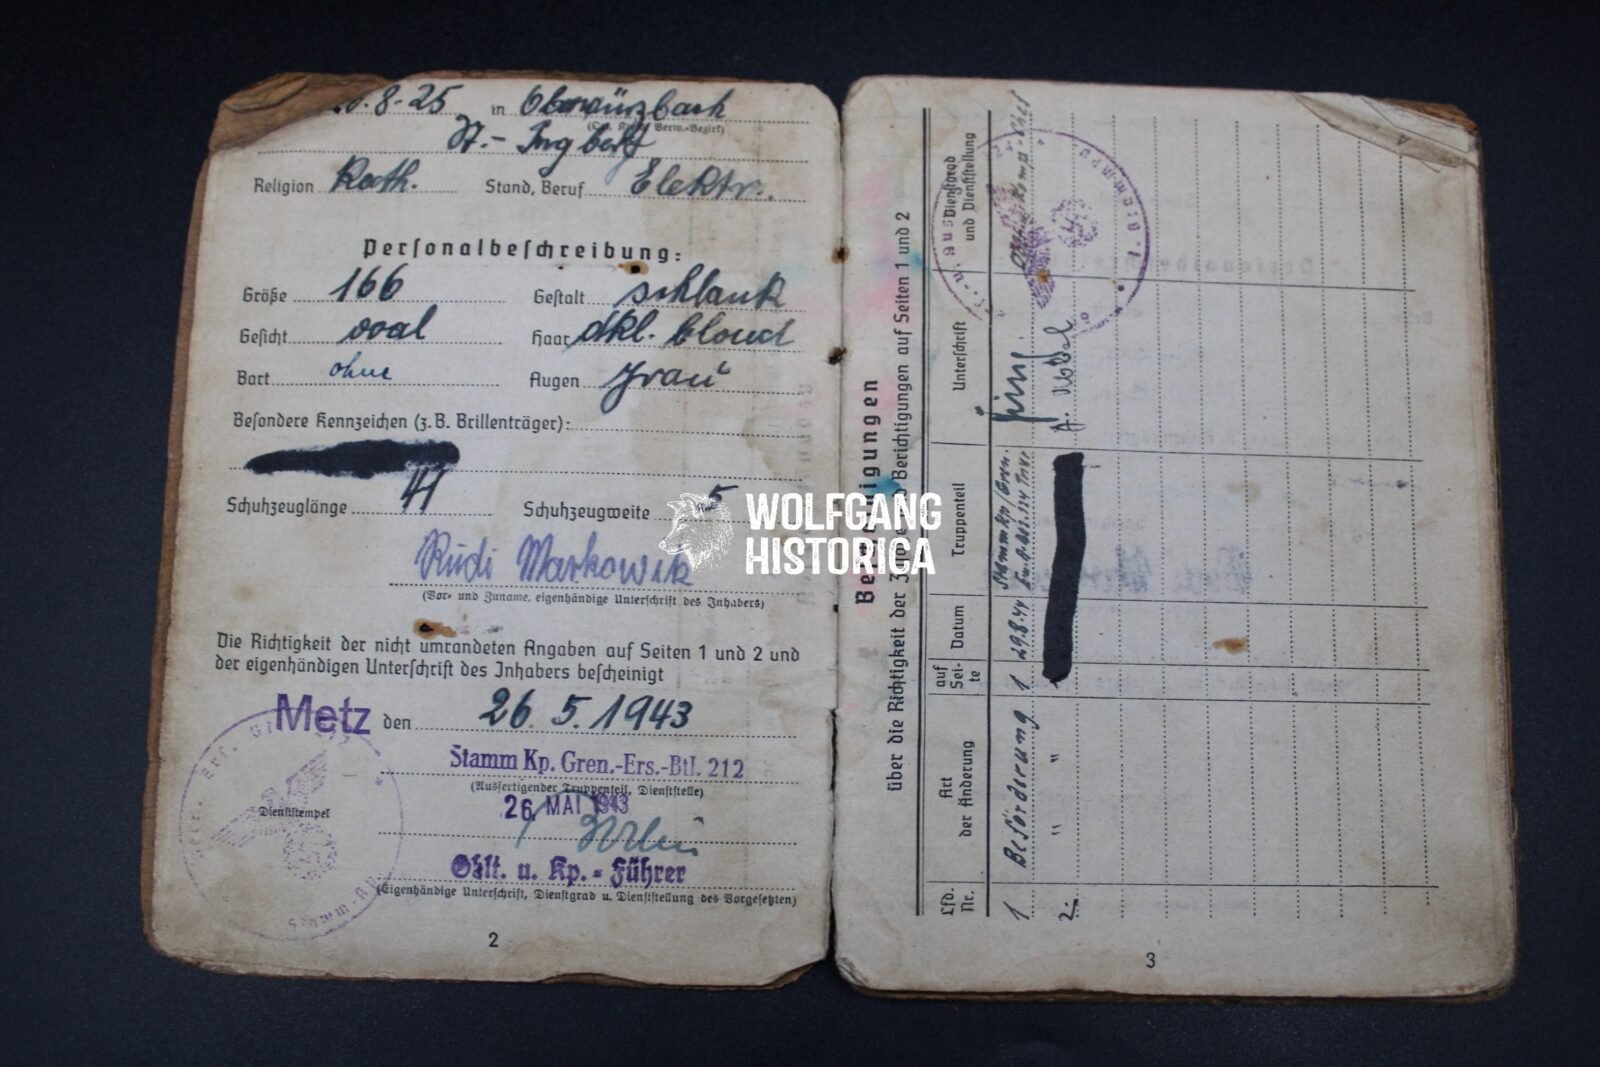 8-25 in Oberwürzbach
(Ort, Kreis, Verw.-Bezirk)
St.- Ingbert
Religion Kath. Stand, Beruf Elektr.
Personalbeschreibung:
Größe 166 Gestalt schlank
Gesicht oval Haar dkl. blond
Bart ohne Augen grau
Besondere Kennzeichen (z.B. Brillenträger):
Schuhzeuglänge 41 Schuhzeugweite 5
Rudi Markowik
(Vor- und Zuname, eigenhändige Unterschrift des Inhabers)
Die Richtigkeit der nicht umrandeten Angaben auf Seiten 1 und 2 und
der eigenhändigen Unterschrift des Inhabers bescheinigt
Metz den 26. 5. 1943
Stamm Kp. Gren.-Ers.-Btl. 212
(Ausfertigender Truppenteil, Dienststelle)
26. MAI 1943
Dienststempel
Oblt. u. Kp.-Führer
(Eigenhändige Unterschrift, Dienstgrad u. Dienststellung des Vorgesetzten)
2
WOLFGANG
HISTORICA
über die Richtigkeit der Berichtigungen auf Seiten 1 und 2
Lfd. Nr.
Art der Änderung
auf Seite
Datum
Truppenteil
Unterschrift
Dienstgrad und Dienststellung
1 Beförderung 1 29.8.44 Stamm Kp/Gren.
2. " "
3